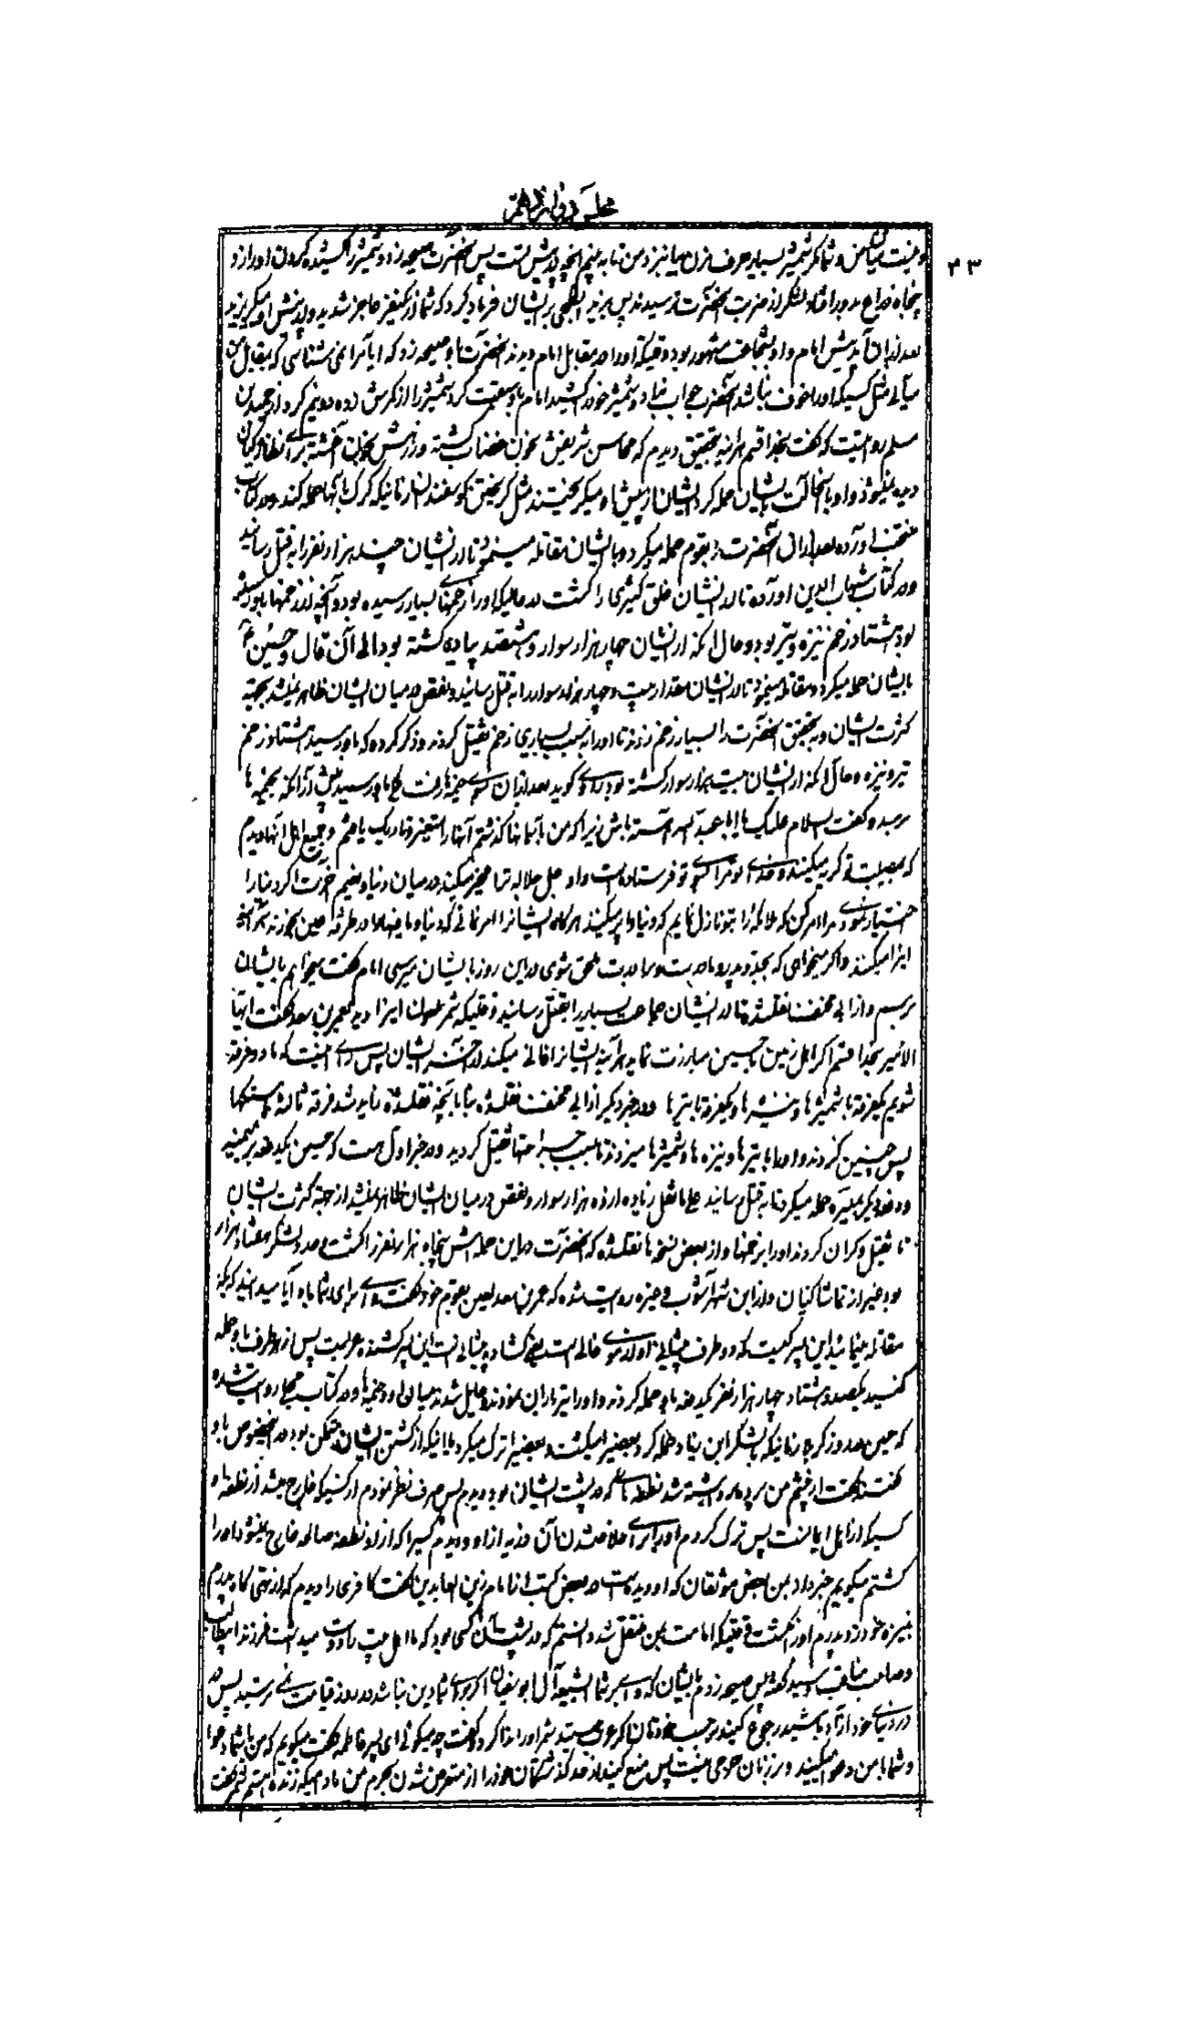 مجلس دوازدهم
۴۳
و نیست میان من و شما مگر شمشیر بسیار حرف مزن بیا نزد من تا به بینم آنچه در پیش تست پس آنحضرت صیحه زد و شمشیر را کشیده گردن او را زد
پنجاه ذراع دور افتاد لشکر از ضربت آنحضرت ترسیدند پس یزید ابطحی بر ایشان فریاد کرد که شما از یکنفر عاجز شدید و از پیش او میگریزید
بعد از آن آمد پیش امام و او بشجاعت مشهور بود وقتیکه او را در مقابل امام دیدند آنحضرت باو صیحه زد که ایا مرا نمی شناسی که بمقابل من
میآئی مثل کسیکه او را خوف نباشد آنحضرت جواب نداد و شمشیر خود کشید امام باو سبقت کرد شمشیر را از کمرش زده دو نیم کرد از حمید بن
مسلم روایت که گفت بخدا قسم هر اینه بتحقیق دیدم که محاسن شریفش بخون خضاب گشته و زرهش بخون آغشته
و او با آنحالت بایشان حمله کرد ایشان از پیش او میگریختند مثل گریختن گوسفندان از زمانیکه گرگ بآنها حمله کند و در کتاب
منتخب آورده بعد از آن آنحضرت بقوم حمله میکرد و با ایشان مقاتله مینمود تا از ایشان چند هزار نفر را به قتل رسانید
و در کتاب شهاب الدین آورده تا از ایشان خلق کثیری را کشت در حالیکه او را زخمهای بسیار رسیده بود و آنچه از زخمها باو رسیده
بود هشتاد زخم نیزه و تیر بود و حال آنکه از ایشان چهار هزار سوار و هشتصد پیاده کشته بود الی آن قال و حسین ع
بایشان حمله میکرد و مقاتله مینمود تا از ایشان مقدار بیست و چهار هزار سوار را به قتل رسانید و نقص در میان ایشان ظاهر نمیشد بجهة
کثرت ایشان و به تحقیق آنحضرت را بسیار زخم زدند تا او را به سبب بسیاری زخم ثقیل کردند و ذکر کرده که باو رسید هشتاد زخم
تیر و نیزه و حال آنکه از ایشان بیست هزار سوار کشته بود راوی گوید بعد از آن سوی خیمه ها رفت ملکی باو رسید پیش از آنکه بخیمه ها
برسد و گفت السلام علیک یا ابا عبد الله آهسته باش زیرا که من بآسمانها گذشتم آنها را متغیر و تاریک یافتم و جمیع اهل آنها دیدم
که بمصیبت تو گریه میکنند و خدای تو مرا بسوی تو فرستاده است و او جل جلاله ترا مخیر میکند در میان دنیا و نعیم آخرت اگر دنیا را
اختیار نمودی مرا امر کن که ملائکه را بتو نازل نمایم که دنیا را پر میکنند هرگاه ایشانرا امر نمائی که دنیا و ما فیها را در طرفة عین
میکنند و اگر میخواهی که بجد و پدر و مادرت و برادرت ملحق شوی در این روز بایشان میرسی امام گفت میخواهم بایشان
برسم و از ابی مخنف نقلشده تا از ایشان جماعت بسیار را بقتل رسانید وقتیکه شمر ملعون اینرا دید بعمر بن سعد گفت ایها
الامیر بخدا قسم اگر اهل زمین با حسین مبارزت نماید هر آینه ایشانرا فانی میکند از آخر ایشان پس رای اینست که ما دو فرقه
شویم یکفرقه با شمشیرها و نیزه ها و یکفرقه با تیرها و در خبر دیگر از ابی مخنف نقلشده بنا بآنچه نقلشده زاید شد فرقه ثالثه با سنگها
پس چنین کردند و او را با تیرها و نیزه ها و شمشیرها میزدند تا بسبب جراحتها ثقیل گردید و در خبر اول است که حسین یکدفعه بر میمنه
و دفعه دیگر بمیسره حمله میکرد تا به قتل رسانید علی ما نقل زیاده از ده هزار سوار و نقص در میان ایشان ظاهر نمیشد از جهة کثرت ایشان
تا ثقیل و گران کردند او را بزخمها و از بعض نسخه ها نقلشده که آنحضرت در این حمله اش پنجاه هزار نفر را کشت و عدد لشکر هفتاد هزار
بود غیر از تماشاکنان و از ابن شهر آشوب و غیره روایت شده که عمر بن سعد لعین بقوم خود گفت وای برای شما باد آیا میدانید که با که
مقاتله مینمائید این پسر کیست که دو طرف پیشانی او از موی خالی است یعنی گشاده پیشانی است این پسر کشنده عرب است پس از هر طرف باو حمله
کنید یکصد و هشتاد چهار هزار نفر یکدفعه باو حمله کردند و او را تیرباران نمودند و حایل شدند میان او و خیمه ها و در کتاب روایت شده
که حسین در روز کربلا زمانیکه بلشکر ابن زیاد حمله کرد بعضیرا میکشت و بعضیرا ترک میکرد با اینکه از کشتن ایشان متمکن بود در اینخصوص باو
گفتند گفت از چشم من پرده برداشته شد نطفه هائی که در پشت ایشان بود دیدم پس صرف نظر نمودم از کسیکه خارج میشد از نطفه او
کسیکه از اهل ایمانست پس ترک کردم او را برای خلاص شدن آن ذریه از او و دیدم کسیرا که از او نطفه صالحه خارج نمیشود او را
کشتم میگویم خبر داد بمن بعض موثقان که او دیده است در بعض کتب از امام زین العابدین گفت کافری را دیدم که از
نیزه خود زد پدرم او را نکشت وقتیکه امامت بمن منتقل شد دانستم که در پشت آن کسی بود که ما اهل بیت را دوست میداشت
و صاحب مناقب و سید گفته پس صیحه زد بایشان که وای بر شما ای شیعه آل ابو سفیان اگر برای شما دین نباشد و از روز قیامت نمی ترسید پس
در دنیای خود آزاد باشید رجوع کنید بر حسب خودتان اگر عرب هستید شمر او را ندا کرد و گفت چه میگوئی ای پسر فاطمه گفت میگویم که من با شما دعوا
و شما با من دعوا میکنید و بر زنان حرجی نیست پس منع کنید از حد گذشتگان خود را از متعرض شدن بحرم من مادامیکه زنده هستم شمر گفت